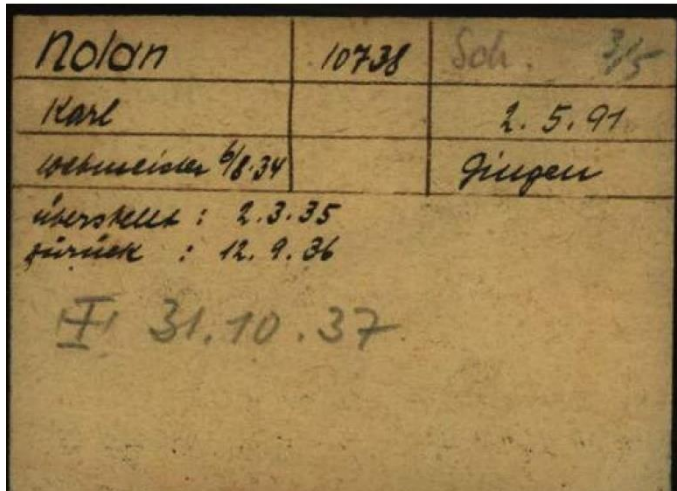 Nolan 10738 Sch. 3/5
Karl 2. 5. 91
Webmeister 6/8.34 Gingen
überstellt : 2.3.35
zurück : 12. 9. 36
I 31.10.37